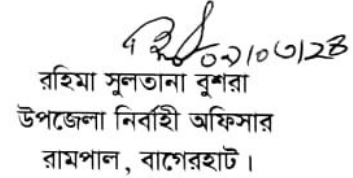 ০২/০৩/২৪
রহিমা সুলতানা বুশরা
উপজেলা নির্বাহী অফিসার
রামপাল, বাগেরহাট।